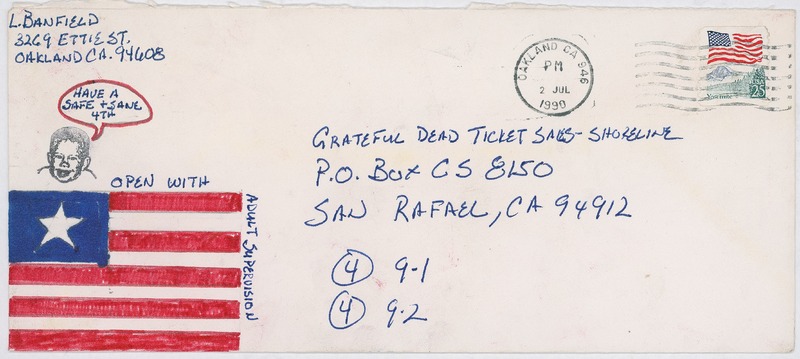 L. BANFIELD
3269 ETTIE ST.
OAKLAND CA. 94608
HAVE A
SAFE + SANE
4TH
OPEN WITH
ADULT SUPERVISION
OAKLAND CA 946
PM
2 JUL
1990
Yosemite
25
GRATEFUL DEAD TICKET SALES - SHORELINE
P.O. BOX CS 8150
SAN RAFAEL, CA 94912
4 9-1
4 9-2